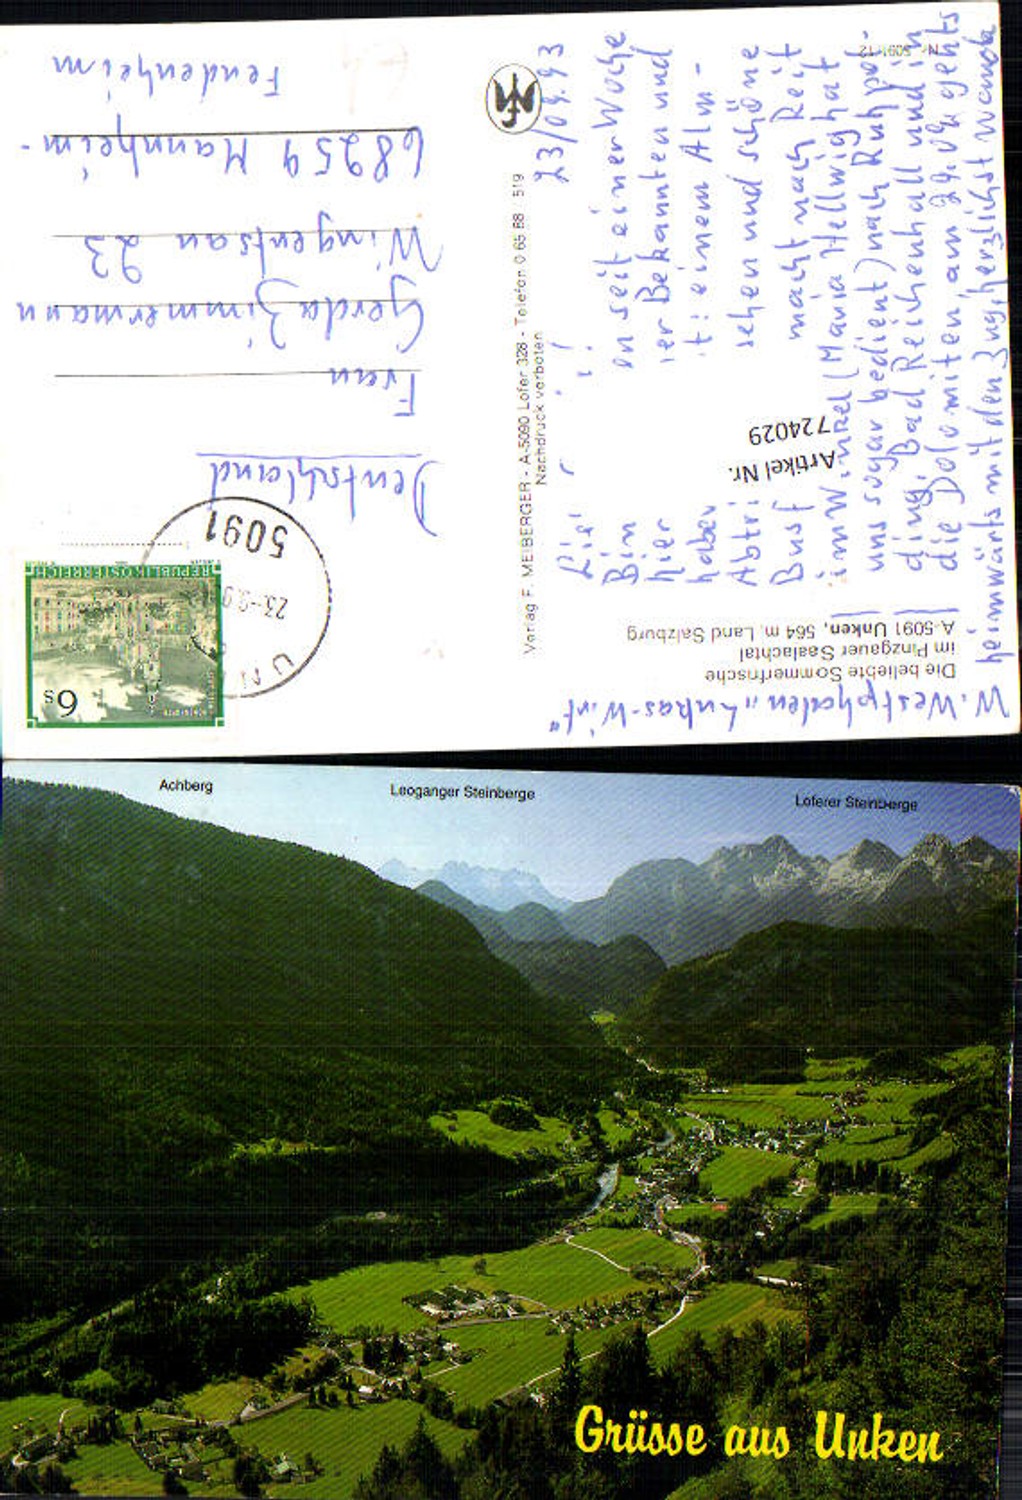 W. Westphalen „Lukas-Wirt"
Die beliebte Sommerfrische
im Pinzgauer Saalachtal
A-5091 Unken, 564 m, Land Salzburg
Nr. 5091/12
23/09.93
Bin
en seit einer Woche
hier
ier Bekannten und
haben
t: einem Alm-
Abtri
sehen und schöne
Busf
macht nach Reit
im Winkel (Maria Hellwig hat
uns sogar bedient) nach Ruhpol-
ding, Bad Reichenhall und in
die Dolomiten, am 24.09 gehts
heimwärts mit den Zug, herzlichst Wanda
Artikel Nr.
724029
Verlag F. MEIBERGER - A-5090 Lofer 328 - Telefon 0 65 88 - 519
Nachdruck verboten
REPUBLIK ÖSTERREICH
6s
5091
23.-9.9
UN
Deutschland
Frau
Gerda Zimmermann
Wingertsau 23
68259 Mannheim-
Feudenheim
Achberg
Leoganger Steinberge
Loferer Steinberge
Grüsse aus Unken